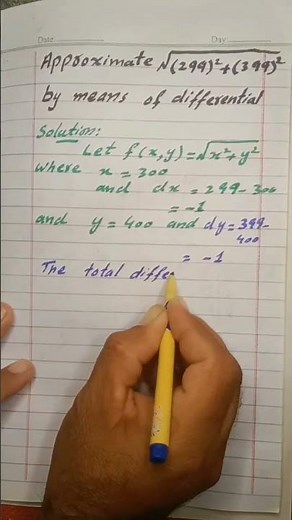 Date: Day:
Approximate √(299)²+(399)²
by means of differential
Solution:
Let f(x,y)=√x²+y²
where x = 300
and dx = 299-300
= -1
and y = 400 and dy = 399-
400
= -1
The total diffe